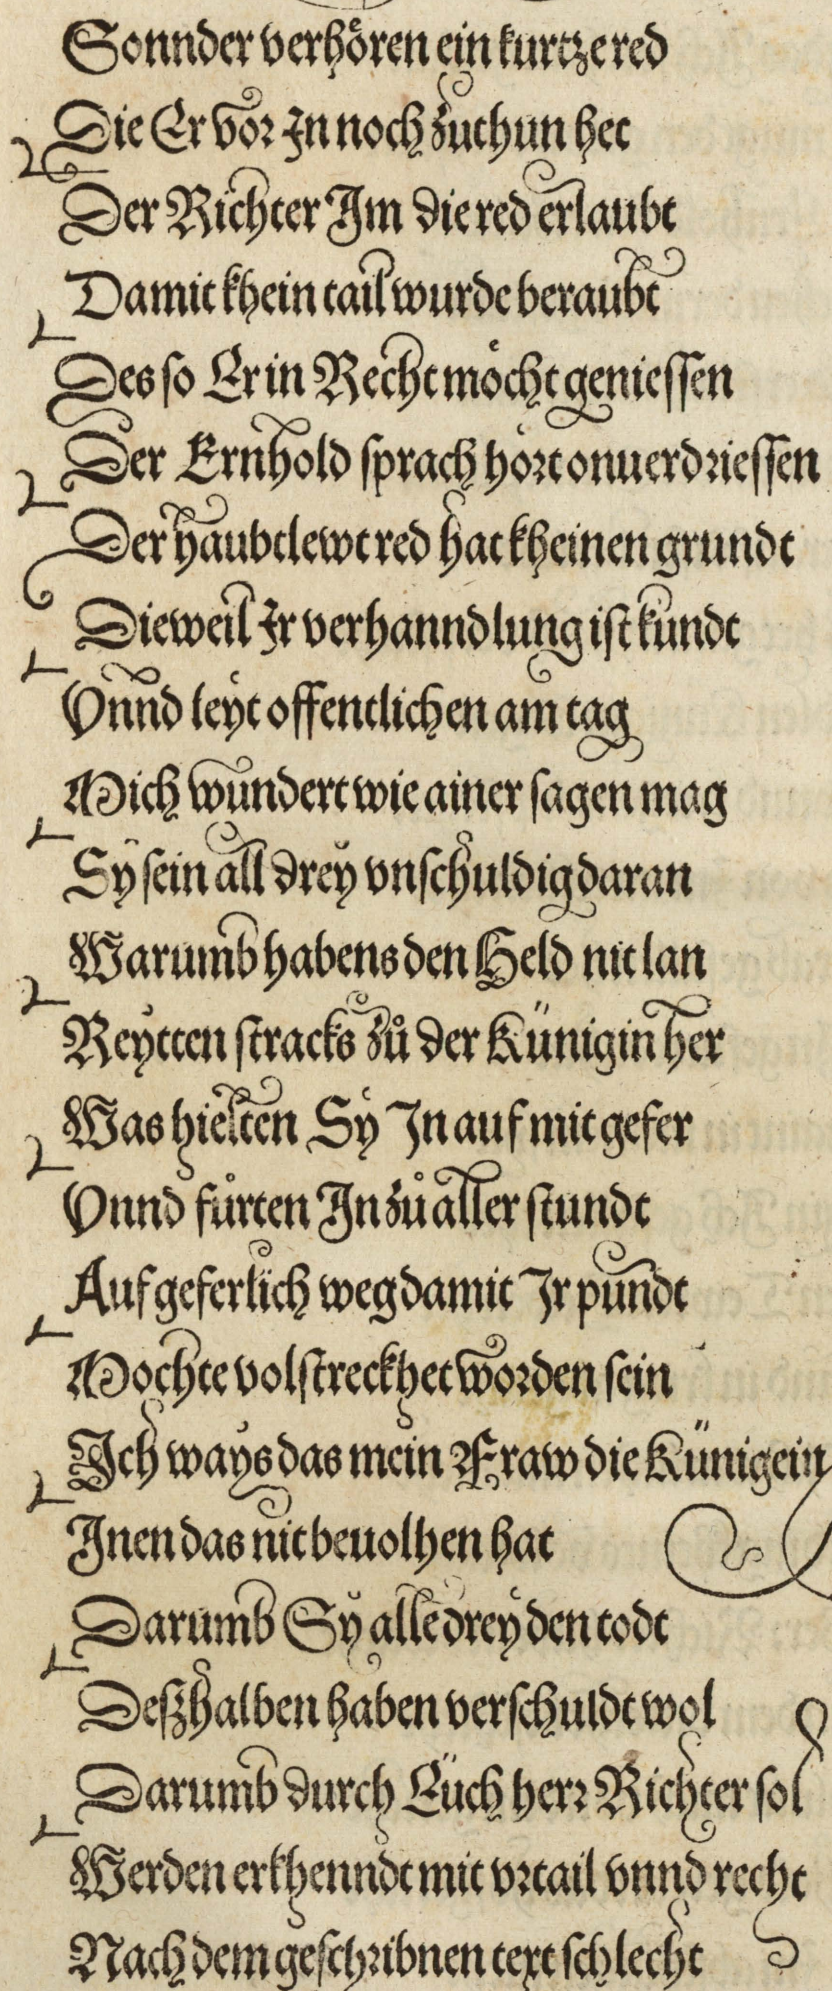 Sonnder verhören ein kurtze red
Die Er vor In noch zuthun het
Der Richter Im die red erlaubt
Damit khein tail wurde beraubt
Des so Er in Recht möcht geniessen
Der Ernhold sprach hört onuerdriessen
Der haubtlewt red hat kheinen grundt
Dieweil Ir verhanndlung ist kundt
Vnnd leyt offentlichen am tag
Mich wundert wie ainer sagen mag
Sy sein all drey vnschuldig daran
Warumb habens den Held nit lan
Reytten stracks zů der Künigin her
Was hielten Sy In auf mit gefer
Vnnd fůrten In zů aller stundt
Auf geferlich weg damit Ir pundt
Mochte volstreckhet worden sein
Ich ways das mein Fraw die Künigein
Inen das nit beuolhen hat
Darumb Sy alle drey den todt
Deßhalben haben verschuldt wol
Darumb durch Eüch herr Richter sol
Werden erkhenndt mit vrtail vnnd recht
Nach dem geschribnen text schlecht